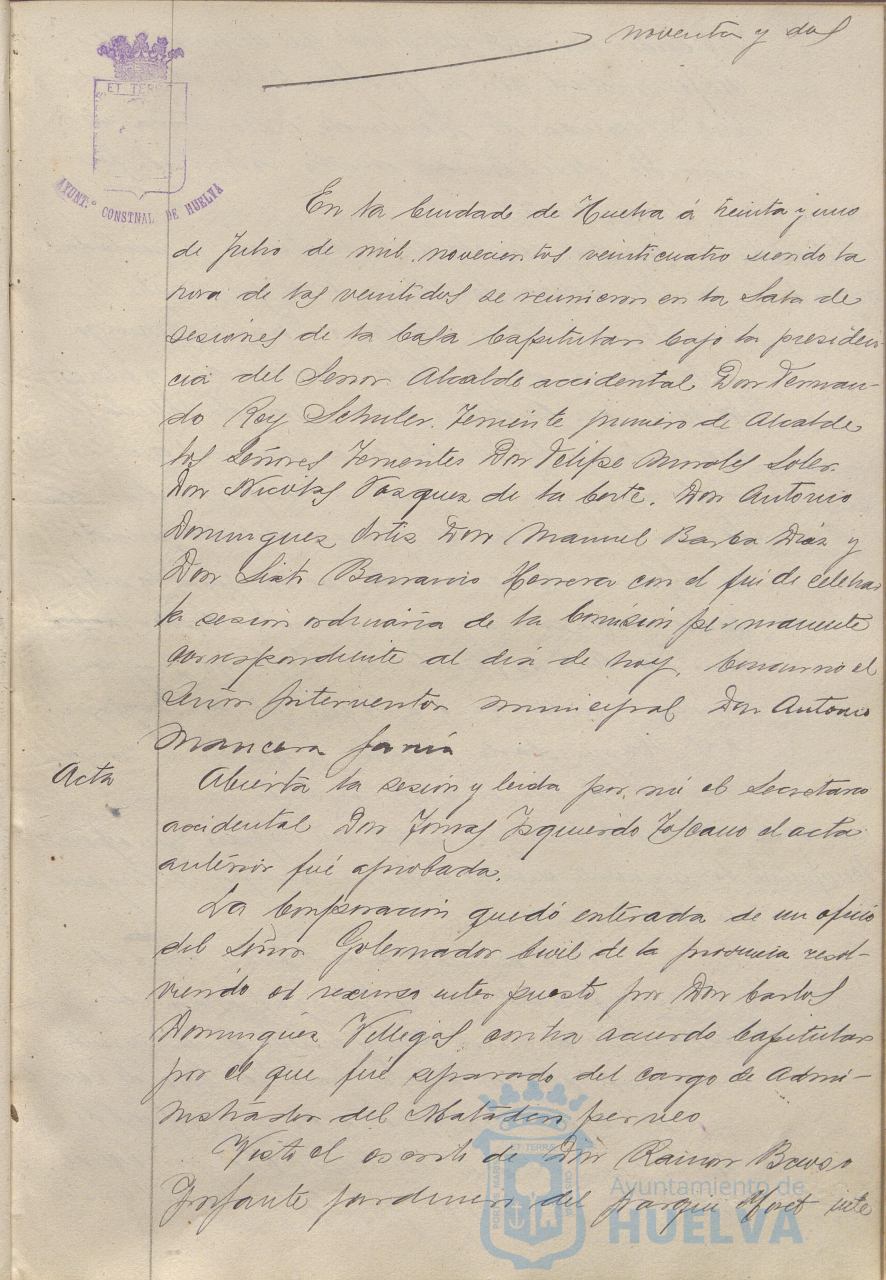 noventa y dos
ET TERR
AYUNT.º CONSTNAL DE HUELVA
En la Ciudade de Huelva á treinta y uno
de Julio de mil novecientos veinticuatro siendo la
hora de las veintidos se reunieron en la Sala de
sesiones de la Casa Capitular bajo la presiden-
cia del Señor Alcalde accidental Don Fernan-
do Rey Schuler. Teniente primero de Alcalde
los Señores Tenientes Don Felipe Morales Soler
Don Nicolas Vazquez de la Corte. Don Antonio
Dominguez Ortiz Don Manuel Barba Diaz y
Don Sixto Barranco Herrera con el fin de celebrar
la sesión ordinaria de la Comisión permanente
correspondiente al dia de hoy, Concurrio el
Señor Interventor municipal Don Antonio
Mancera
Acta
Abierta la sesión y leida por mi el Secretario
accidental Don Tomas Izquierdo Toscano el acta
anterior fué aprobada.
La Corporación quedó enterada de un oficio
del Señor Gobernador Civil de la provincia resol-
viendo el recurso interpuesto por Don Carlos
Dominguez Villegas contra acuerdo Capitular
por el que fué separado del cargo de Admi-
nistrador del Matadero
Visto el escrito de Don Ramon Bayo
Infante jardinero del parque Moret
ET TERRA
Ayuntamiento de
HUELVA